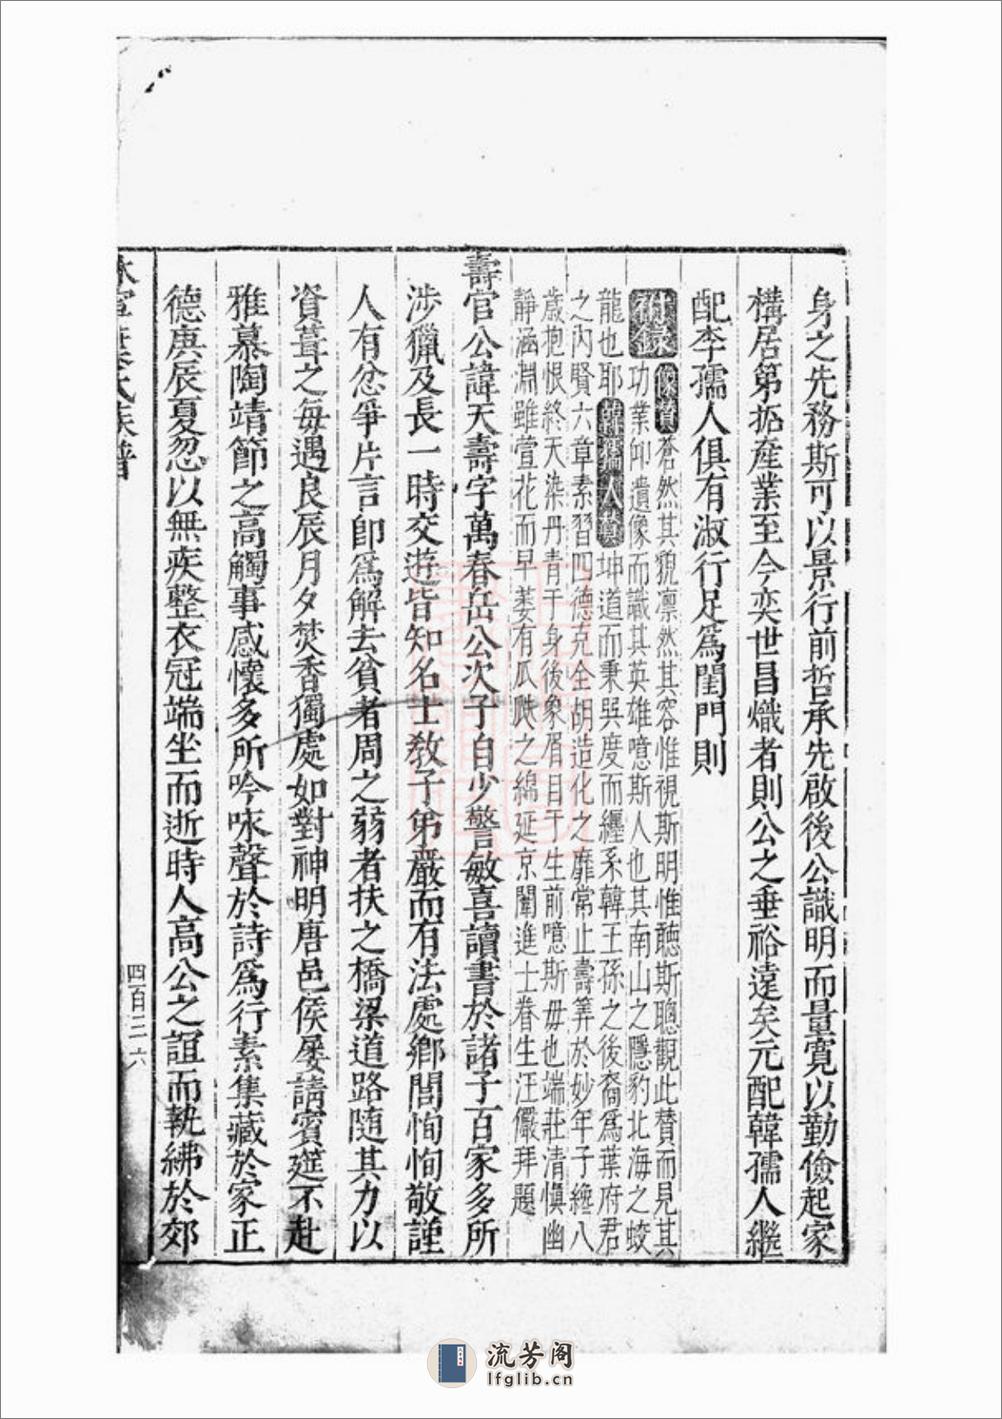 身之先務斯可以景行前哲承先啟後公識明而量寬以勤儉起家
構居第拓產業至今奕世昌熾者則公之垂裕遠矣元配韓孺人繼
配李孺人俱有淑行足爲閨門則
附錄
像贊
蒼然其貌凛然其容惟視斯明惟聽斯聰觀此贊而見其
功業仰遺像而識其英雄噫斯人也其南山之隱豹北海之蛟
龍也耶
韓孺人贊
坤道而秉巽度而纏系韓王孫之後裔爲葉府君
之内賢六章素習四德克全胡造化之靡常止壽筭於妙年子纏八
歲抱恨終天染丹青于身後象眉目于生前噫斯毋也端莊清慎幽
靜涵淵雖萱花而早萎有瓜瓞之綿延京闈進士眷生汪儼拜題
壽官公諱天壽字萬春岳公次子自少警敏喜讀書於諸子百家多所
涉獵及長一時交遊皆知名士教子弟嚴而有法處鄉閭恂恂敬謹
人有忿爭片言即爲解去貧者周之弱者扶之橋梁道路隨其力以
資葺之每遇良辰月夕焚香獨處如對神明唐邑侯屡請賓筵不赴
雅慕陶靖節之高觸事感懷多所吟咏聲於詩爲行素集藏於家正
德庚辰夏忽以無疾整衣冠端坐而逝時人高公之誼而執紼於郊
氏族譜
四百三六
流芳阁
lfglib.cn